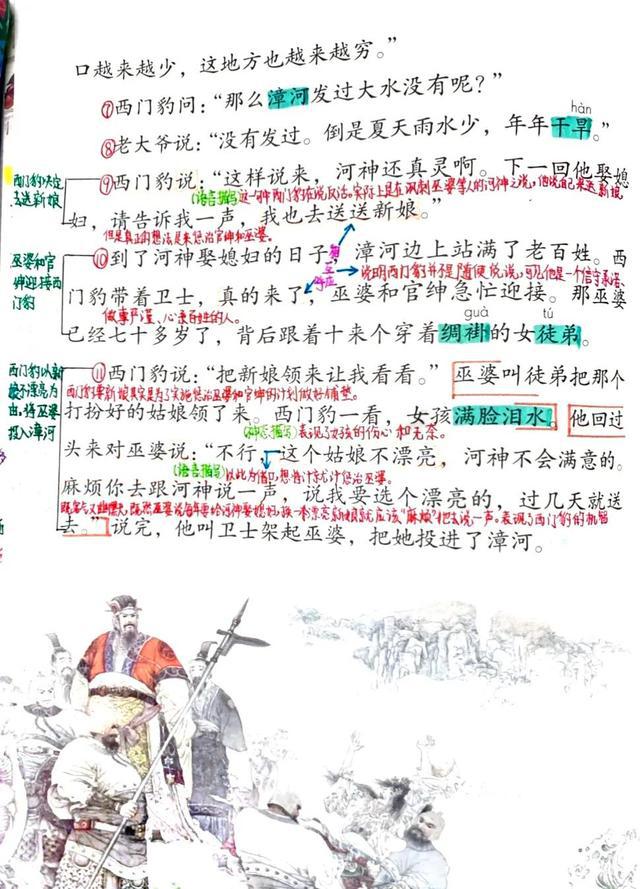 口越来越少，这地方也越来越穷。”
⑦西门豹问：“那么漳河发过大水没有呢？”
hàn
⑧老大爷说：“没有发过。倒是夏天雨水少，年年干旱。”
西门豹决定
去送新娘
⑨西门豹说：“这样说来，河神还真灵啊。下一回他娶媳
(语言描写)这一句中西门豹在说反话。实际上是在讽刺巫婆等人的河神之说，他说自己是送新娘
妇，请告诉我一声，我也去送送新娘。”
但是真正的想法是来惩治官绅和巫婆。
巫婆和官
绅迎接西
门豹
⑩到了河神娶媳妇的日子，漳河边上站满了老百姓。西
前后呼应
说明西门豹并不是随便说说，可见他是一个信守承诺、
门豹带着卫士，真的来了，巫婆和官绅急忙迎接。那巫婆
做事严谨、心系百姓的人。
guà tú
已经七十多岁了，背后跟着十来个穿着绸褂的女徒弟。
西门豹以新
娘不漂亮为
由，将巫婆
投入漳河
⑪西门豹说：“把新娘领来让我看看。”巫婆叫徒弟把那个
西门豹要看新娘其实是为了实施惩治巫婆和官绅的计划做好铺垫。
打扮好的姑娘领了来。西门豹一看，女孩满脸泪水。他回过
(神态描写)表现了女孩的伤心和无奈。
头来对巫婆说：“不行，这个姑娘不漂亮，河神不会满意的。
(语言描写)以此为借口，想将计就计惩治巫婆。
麻烦你去跟河神说一声，说我要选个漂亮的，过几天就送
既客气又幽默，既然巫婆说每年要给河神娶媳妇，换一个漂亮新娘就应该“麻烦”她去说一声。表现了西门豹的机智
去。”说完，他叫卫士架起巫婆，把她投进了漳河。